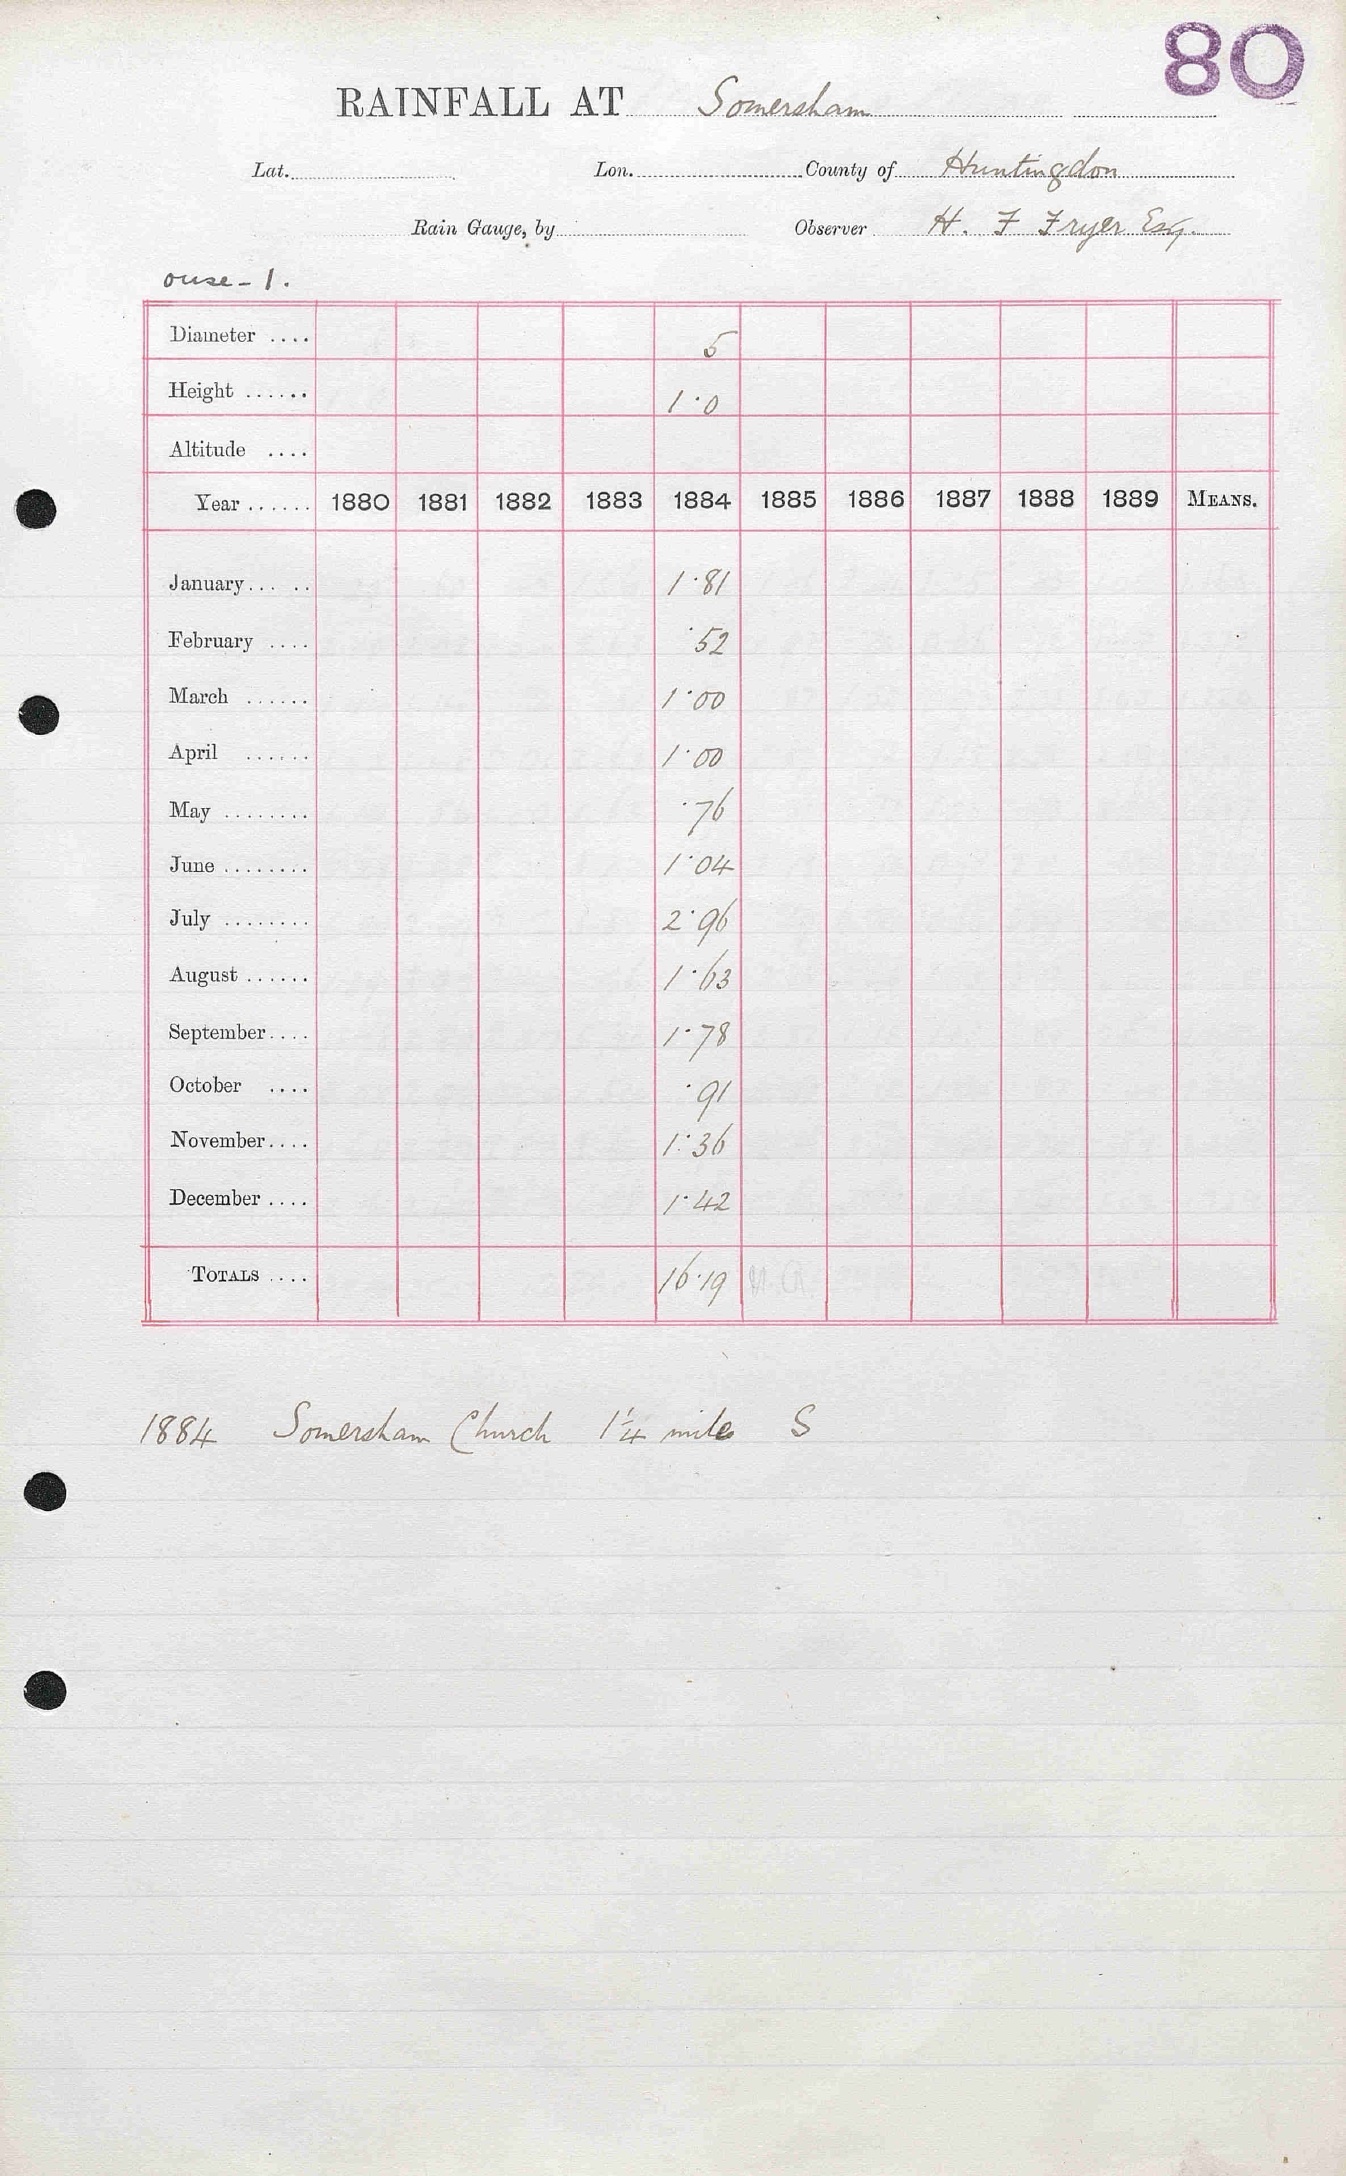 80
RAINFALL AT Somersham
Lat. Lon. County of Huntingdon
Rain Gauge, by Observer H. F Fryer Esq.
ouse - 1.
Diameter .... 5
Height ...... 1·0
Altitude ....
Year ...... 1880 1881 1882 1883 1884 1885 1886 1887 1888 1889 MEANS.
January ... .. 1·81
February .... ·52
March ...... 1·00
April ...... 1·00
May ........ ·76
June ........ 1·04
July ........ 2·96
August ...... 1·63
September .... 1·78
October .... ·91
November .... 1·36
December .... 1·42
TOTALS .... 16·19
1884 Somersham Church 1¼ miles S